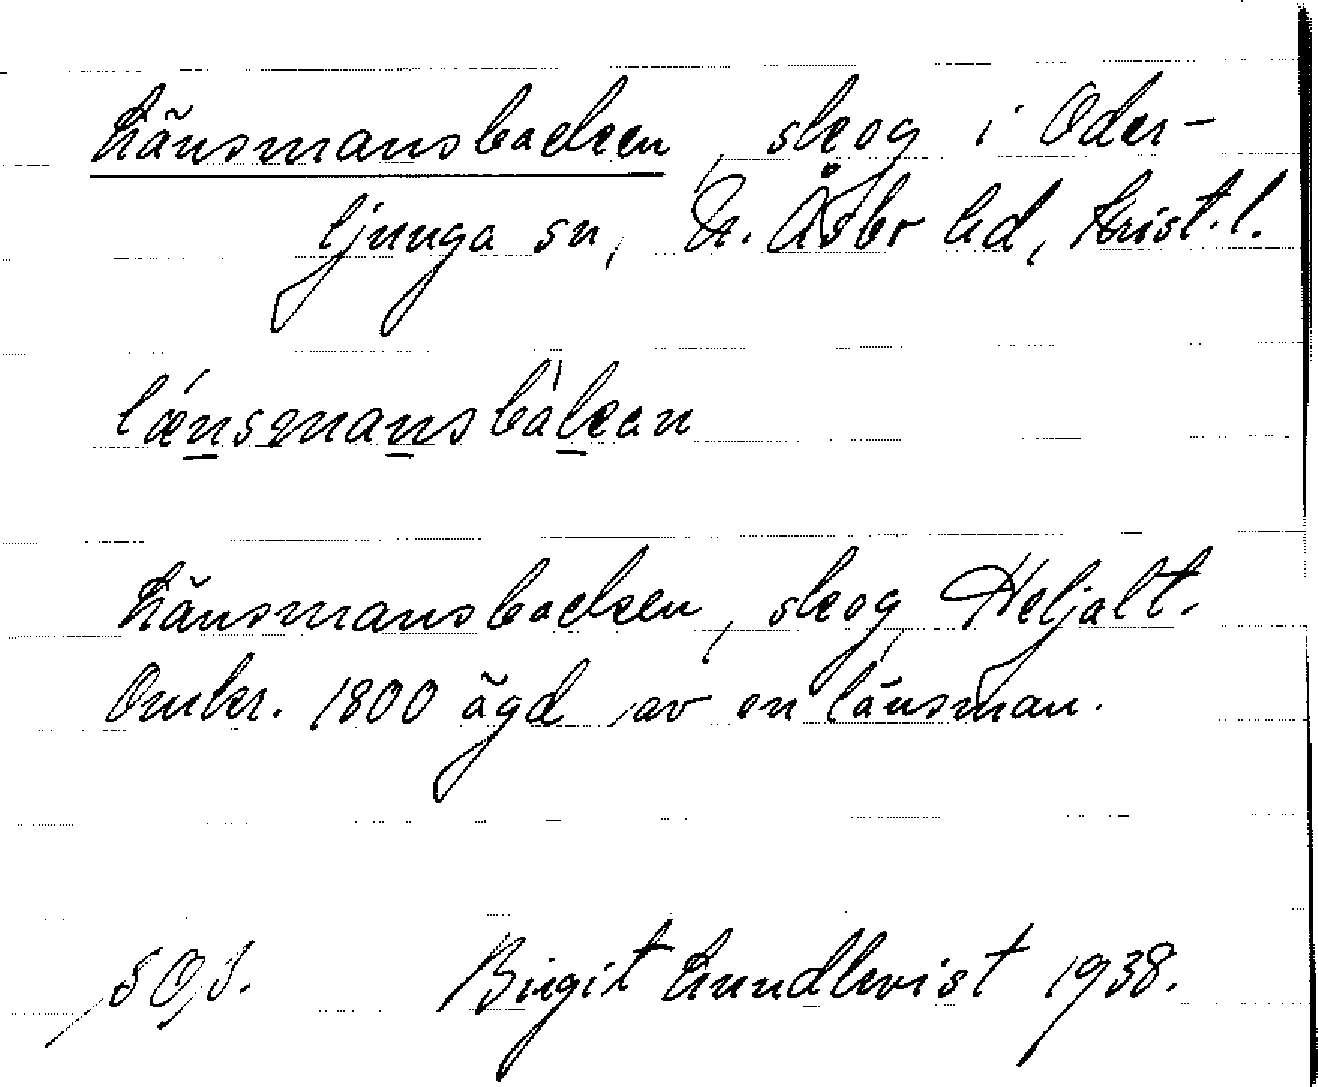 Länsmansbacken, skog i Oder-
ljunga sn, N. Åsbo hd, Krist. l.
lænsmansbákean
Länsmansbacken, skog Heljalt.
Omkr. 1800 ägd av en länsman.
Birgit Lundkvist 1938.